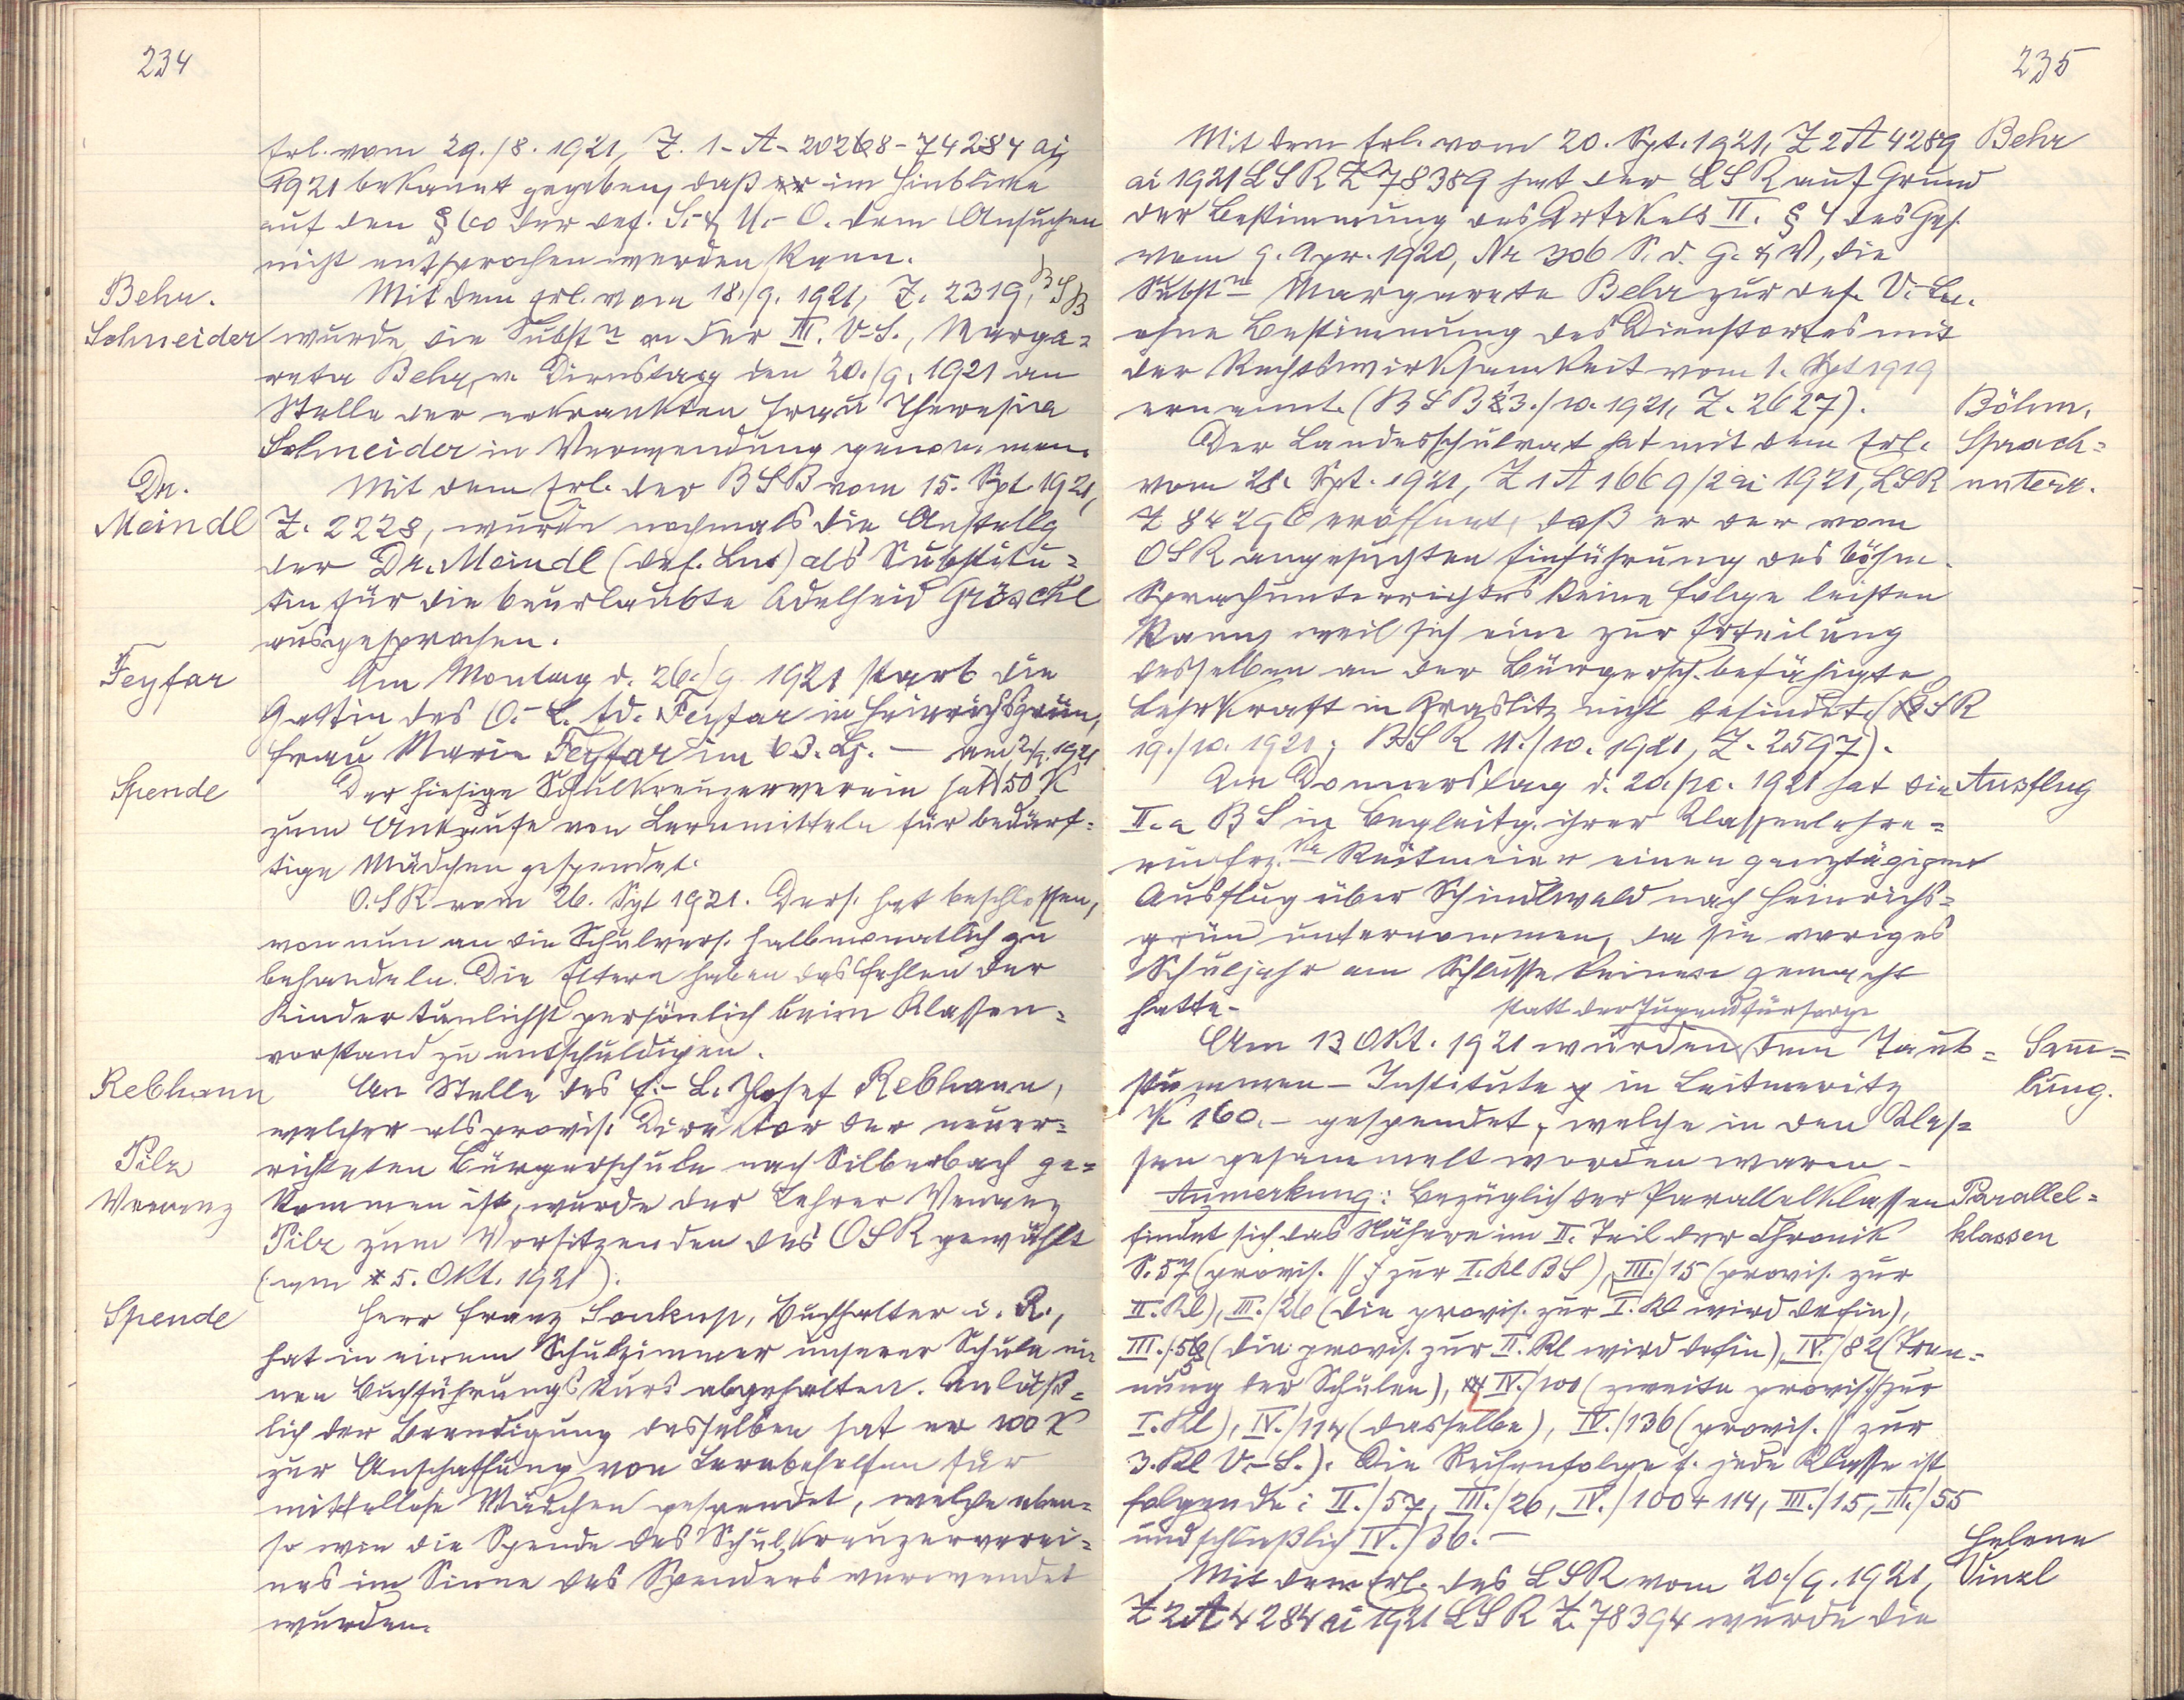 234
Erl. vom 29./8. 1921, Z. 1-A-20268-74284 ai
1921 bekannt gegeben, daß im Hinblicke
auf den § 60 der def. S.- & U.- O. dem Ansuchen
nicht entsprochen werden kann.
Behr.
Mit dem Erl. vom 18./9. 1921, Z. 2319, BSB
Schneider
wurde die Substn an der III. V.-S., Marga=
reta Behr, v. Dienstag den 20./9. 1921 an
Stelle der erkrankten Frau Theresia
Schneider in Verwendung genommen.
Dr.
Meindl
Mit dem Erl. der BSB vom 15. Spt. 1921,
Z. 2228, wurde nochmals die Anstellg
der Dr. Meindl (def. Lin) als Substitu=
tin für die beurlaubte Adelheid Gröschl
ausgesprochen.
Feyfar
Am Montag d. 26./9 1921 starb die
Gattin des O.-L. Ad. Feyfar in Heinrichsgrün,
Frau Marie Feyfar im 63. Lj. —
Spende
Der hiesige Schulkreuzerverein hat 50 K
zum Ankaufe von Lernmitteln für bedürf=
tige Mädchen gespendet.
O.SR vom 26. Spt 1921. Ders. hat beschlossen,
von nun an die Schulvers. halbmonatlich zu
behandeln. Die Eltern haben das Fehlen der
Kinder tunlichst persönlich beim Klassen=
vorstand zu entschuldigen.
Rebhann
An Stelle des F.-L. Josef Rebhann,
welcher als provis. Direktor der neuer=
Pilz
richteten Bürgerschule nach Silberbach ge=
Wenenz
kommen ist, wurde der Lehrer Wenenz
Pilz zum Vorsitzenden des OSR gewählt
(am 5. Okt. 1921).
Spende
Herr Franz Soukup, Buchhalter i. R.,
hat in einem Schulzimmer unserer Schule ei=
nen Buchführungskurs abgehalten. Anläß=
lich der Beendigung desselben hat er 100 K
zur Anschaffung von Lernbehelfen für
mittellose Mädchen gespendet, welche eben=
so wie die Spende des Schulkreuzerverei=
nes im Sinne des Spenders verwendet
wurden.
235
Mit dem Erl. vom 20. Spt. 1921, Z 2 A 4289
Behr
ai 1921 LSR Z 78389 hat der LSR auf Grund
der Bestimmung des Artikels II. § 4 des Ges.
vom 9. Apr. 1920, Nr 306 S. d. G. & V, die
Substn Margarete Behr zur def. V.-Ln.
ohne Bestimmung des Dienstortes mit
der Rechtswirksamkeit vom 1. Spt 1919
ernannt. (BSB 3./10. 1921, Z. 2627).
Böhm.
Sprach=
unterr.
Der Landesschulrat hat mit dem Erl.
vom 28. Spt. 1921, Z 1 A 1669/2 ai 1921, LSR
Z 84296 eröffnet, daß er der vom
OSR angesuchten Einführung des böhm.
Sprachunterrichtes keine Folge leisten
kann, weil sich eine zur Erteilung
desselben an der Bürgersch. befähigte
Lehrkraft in Graslitz nicht befindet. (OSR
19./10. 1921; BSR 11./10. 1921, Z. 2597).
Am Donnerstag d. 20./10. 1921 hat die
Ausflug
II. a BS in Begleitg. ihrer Klassenlehre=
rin Reitmeier einen ganztägigen
Ausflug über Schindlwald nach Heinrichs=
grün unternommen, da sie voriges
Schuljahr am Schlusse keinen gemacht
hatte.
statt der Jugendfürsorge
Am 13 Okt. 1921 wurden dem Taub=
Sam̅=
lung.
stummen - Institute in Leitmeritz
K 160.- gespendet, welche in den Klas=
sen gesammelt worden waren.
Anmerkung: Bezüglich der Parallelklassen
Parallel=
klassen
findet sich das Nähere im II. Teil der Chronik
S. 57 (provis. // zur I. Kl BS), III./15 (provis. zur
II. Kl), III./26 (die provis. zur I. Kl wird defin),
III./56 (die provis. zur II. Kl wird defin), IV./82 (Tren=
nung der Schulen), IV./100 (zweite provis. // zur
I. Kl), IV./114 (dasselbe), IV./136 (provis. // zur
3. Kl V.-S.). Die Reihenfolge f. jede Klasse ist
folgende: II./57, III./26, IV./100 + 114, III./15, III./55
und schließlich IV./36. —
Helene
Vinzl
Mit dem Erl. des LSR vom 20./9. 1921,
Z 2 A 4284 ai 1921 LSR Z. 78394 wurde die